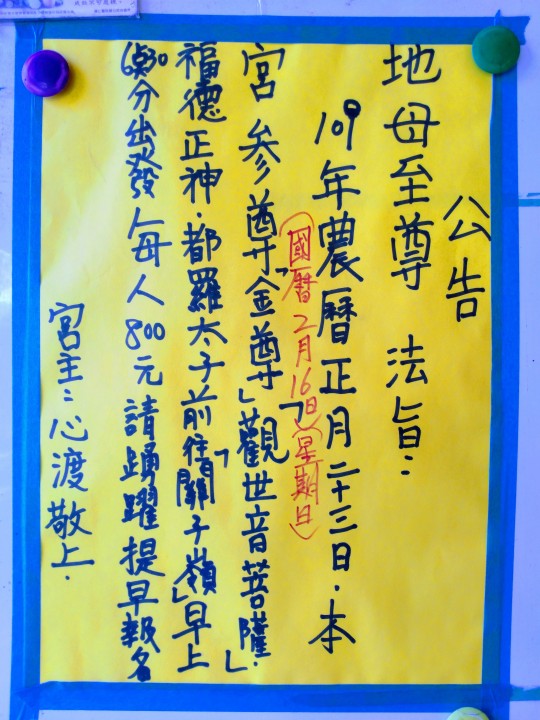 公告
地母至尊 法旨：
109年農曆正月二十三日．本
(國曆2月16日)(星期日)
宮參尊「金尊」「觀世音菩薩．」
福德正神．都羅太子前往「關子嶺」早上
6點30分出發每人800元請踴躍提早報名
宮主：心渡敬上．